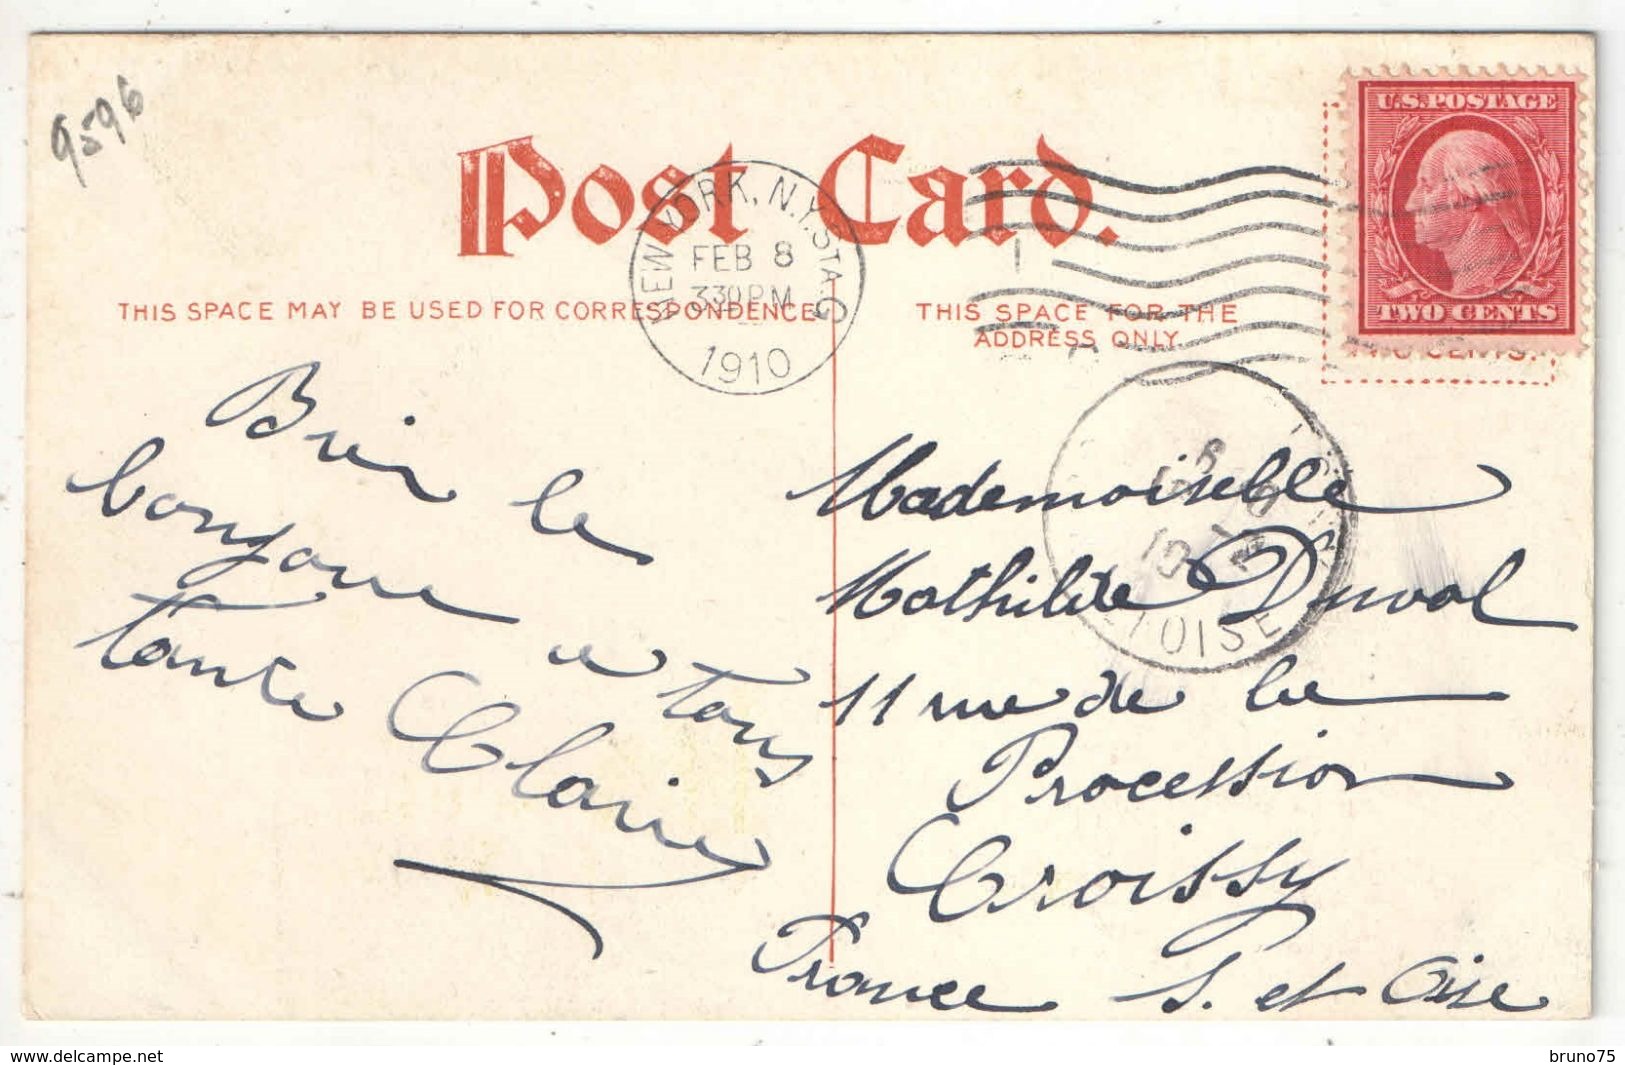 9596
Post Card.
NEW YORK, N.Y. STA. G
FEB 8
330 PM
1910
U.S. POSTAGE
TWO CENTS
THIS SPACE MAY BE USED FOR CORRESPONDENCE
THIS SPACE FOR THE
ADDRESS ONLY
TWO CENTS.
Bien le
bonjour a tous
tante Claire
Mademoiselle
Mathilde Duval
11 rue de la
Procession
Croissy
France S. et Oise
TOISE
delcampe.net
bruno75